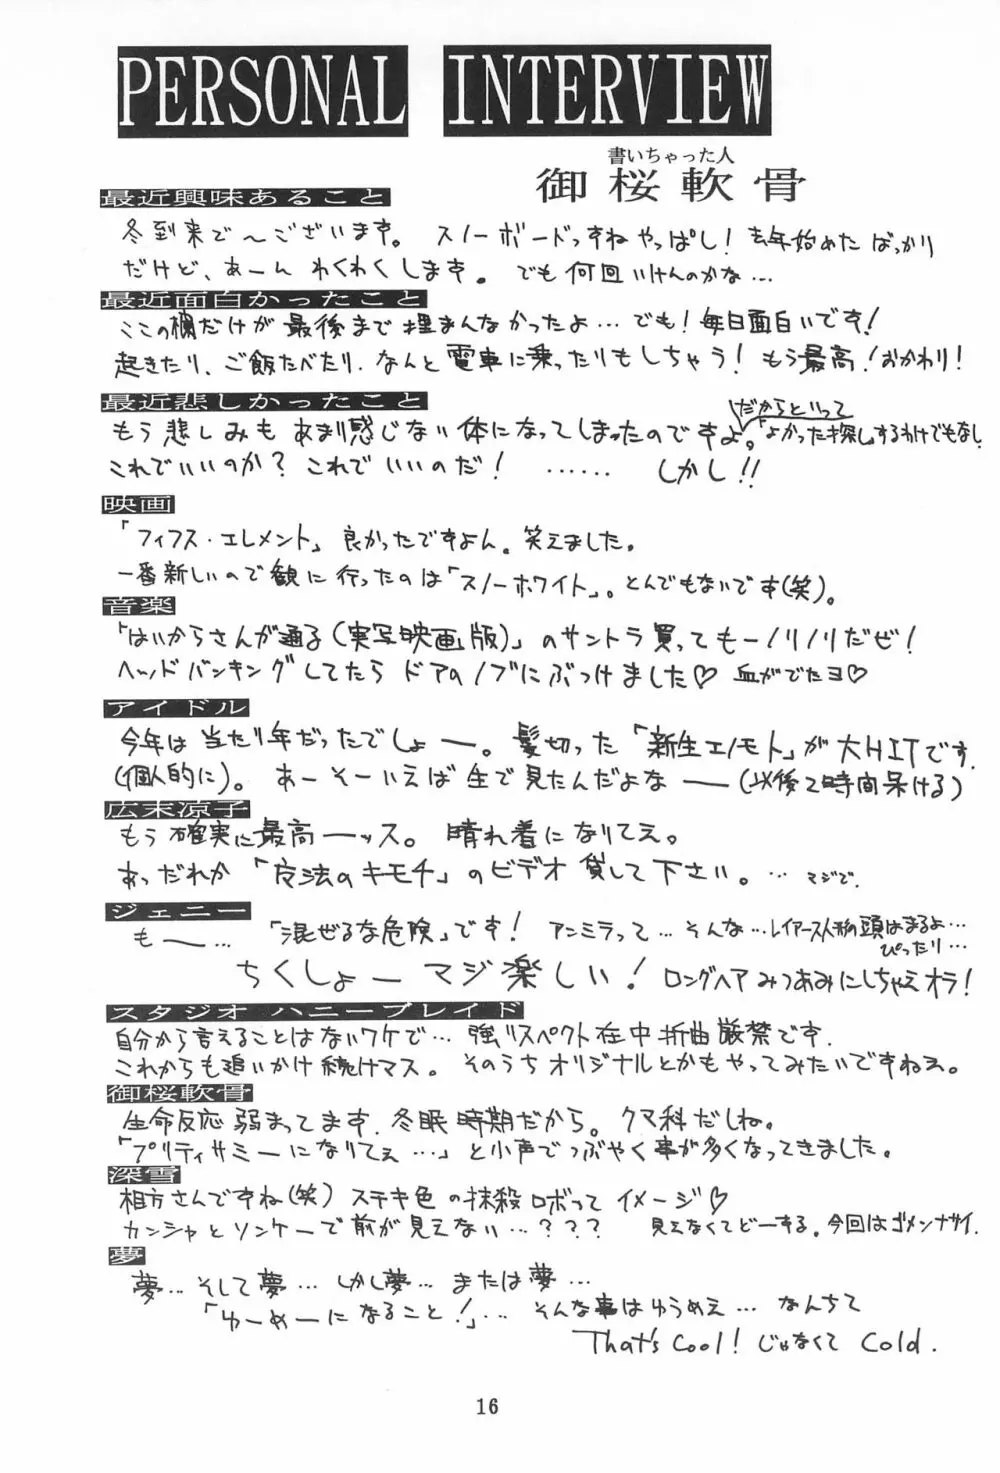 PERSONAL INTERVIEW
書いちゃった人
御桜軟骨
最近興味あること
冬到来で〜ございます。 スノーボードっすねやっぱし！去年始めたばっかり
だけど、あーん わくわくします。 でも何回いけんのかな…
最近面白かったこと
ここの欄だけが最後まで埋まんなかったよ… でも！毎日面白いです！
起きたり、ご飯たべたり、なんと電車に乗ったりもしちゃう！ もう最高！おかわり！
最近悲しかったこと
もう悲しみもあまり感じない体になってしまったのですよ。だからといって「よかった探しするわけでもなし
これでいいのか？これでいいのだ！ …… しかし!!
映画
「フィフス・エレメント」良かったですよん。笑えました。
一番新しいので観に行ったのは「スノーホワイト」。とんでもないです(笑)。
音楽
「はいからさんが通る(実写映画版)」のサントラ買ってもーノリノリだぜ！
ヘッドバンキングしてたらドアのノブにぶつけました♡ 血がでたヨ♡
アイドル
今年は当たり年だったでしょー。髪切った「新生エノモト」が大HITです.
(個人的に)。 あーそーいえば生で見たんだよなー(以後2時間呆ける)
広末涼子
もう確実に最高ーッス。 晴れ着になりてえ。
あっだれか「魔法のキモチ」のビデオ貸して下さい。… マジで.
ジェニー
もー… 「混ぜるな危険」です！ アンミラって… そんな…レイアース人形の頭はまるよ…
ぴったり…
ちくしょーマジ楽しい！ ロングヘアみつあみにしちゃえオラ！
スタジオ ハニーブレイド
自分から言えることはないワケで… 強リスペクト在中折曲厳禁です.
これからも追いかけ続けマス。 そのうちオリジナルとかもやってみたいですねえ。
御桜軟骨
生命反応弱まってます.冬眠時期だから。クマ科だしね。
「プリティサミーになりてぇ…」と小声でつぶやく事が多くなってきました。
深雪
相方さんですね(笑) ステキ色の抹殺ロボってイメージ♡
カンシャとソンケーで前が見えない…??? 見えなくてどーする。今回はゴメンナサイ.
夢
夢… そして夢… しかし夢… または夢…
「ゆーめーになること！」… そんな事はゆうめえ… なんちて
That's Cool! じゃなくて Cold.
16